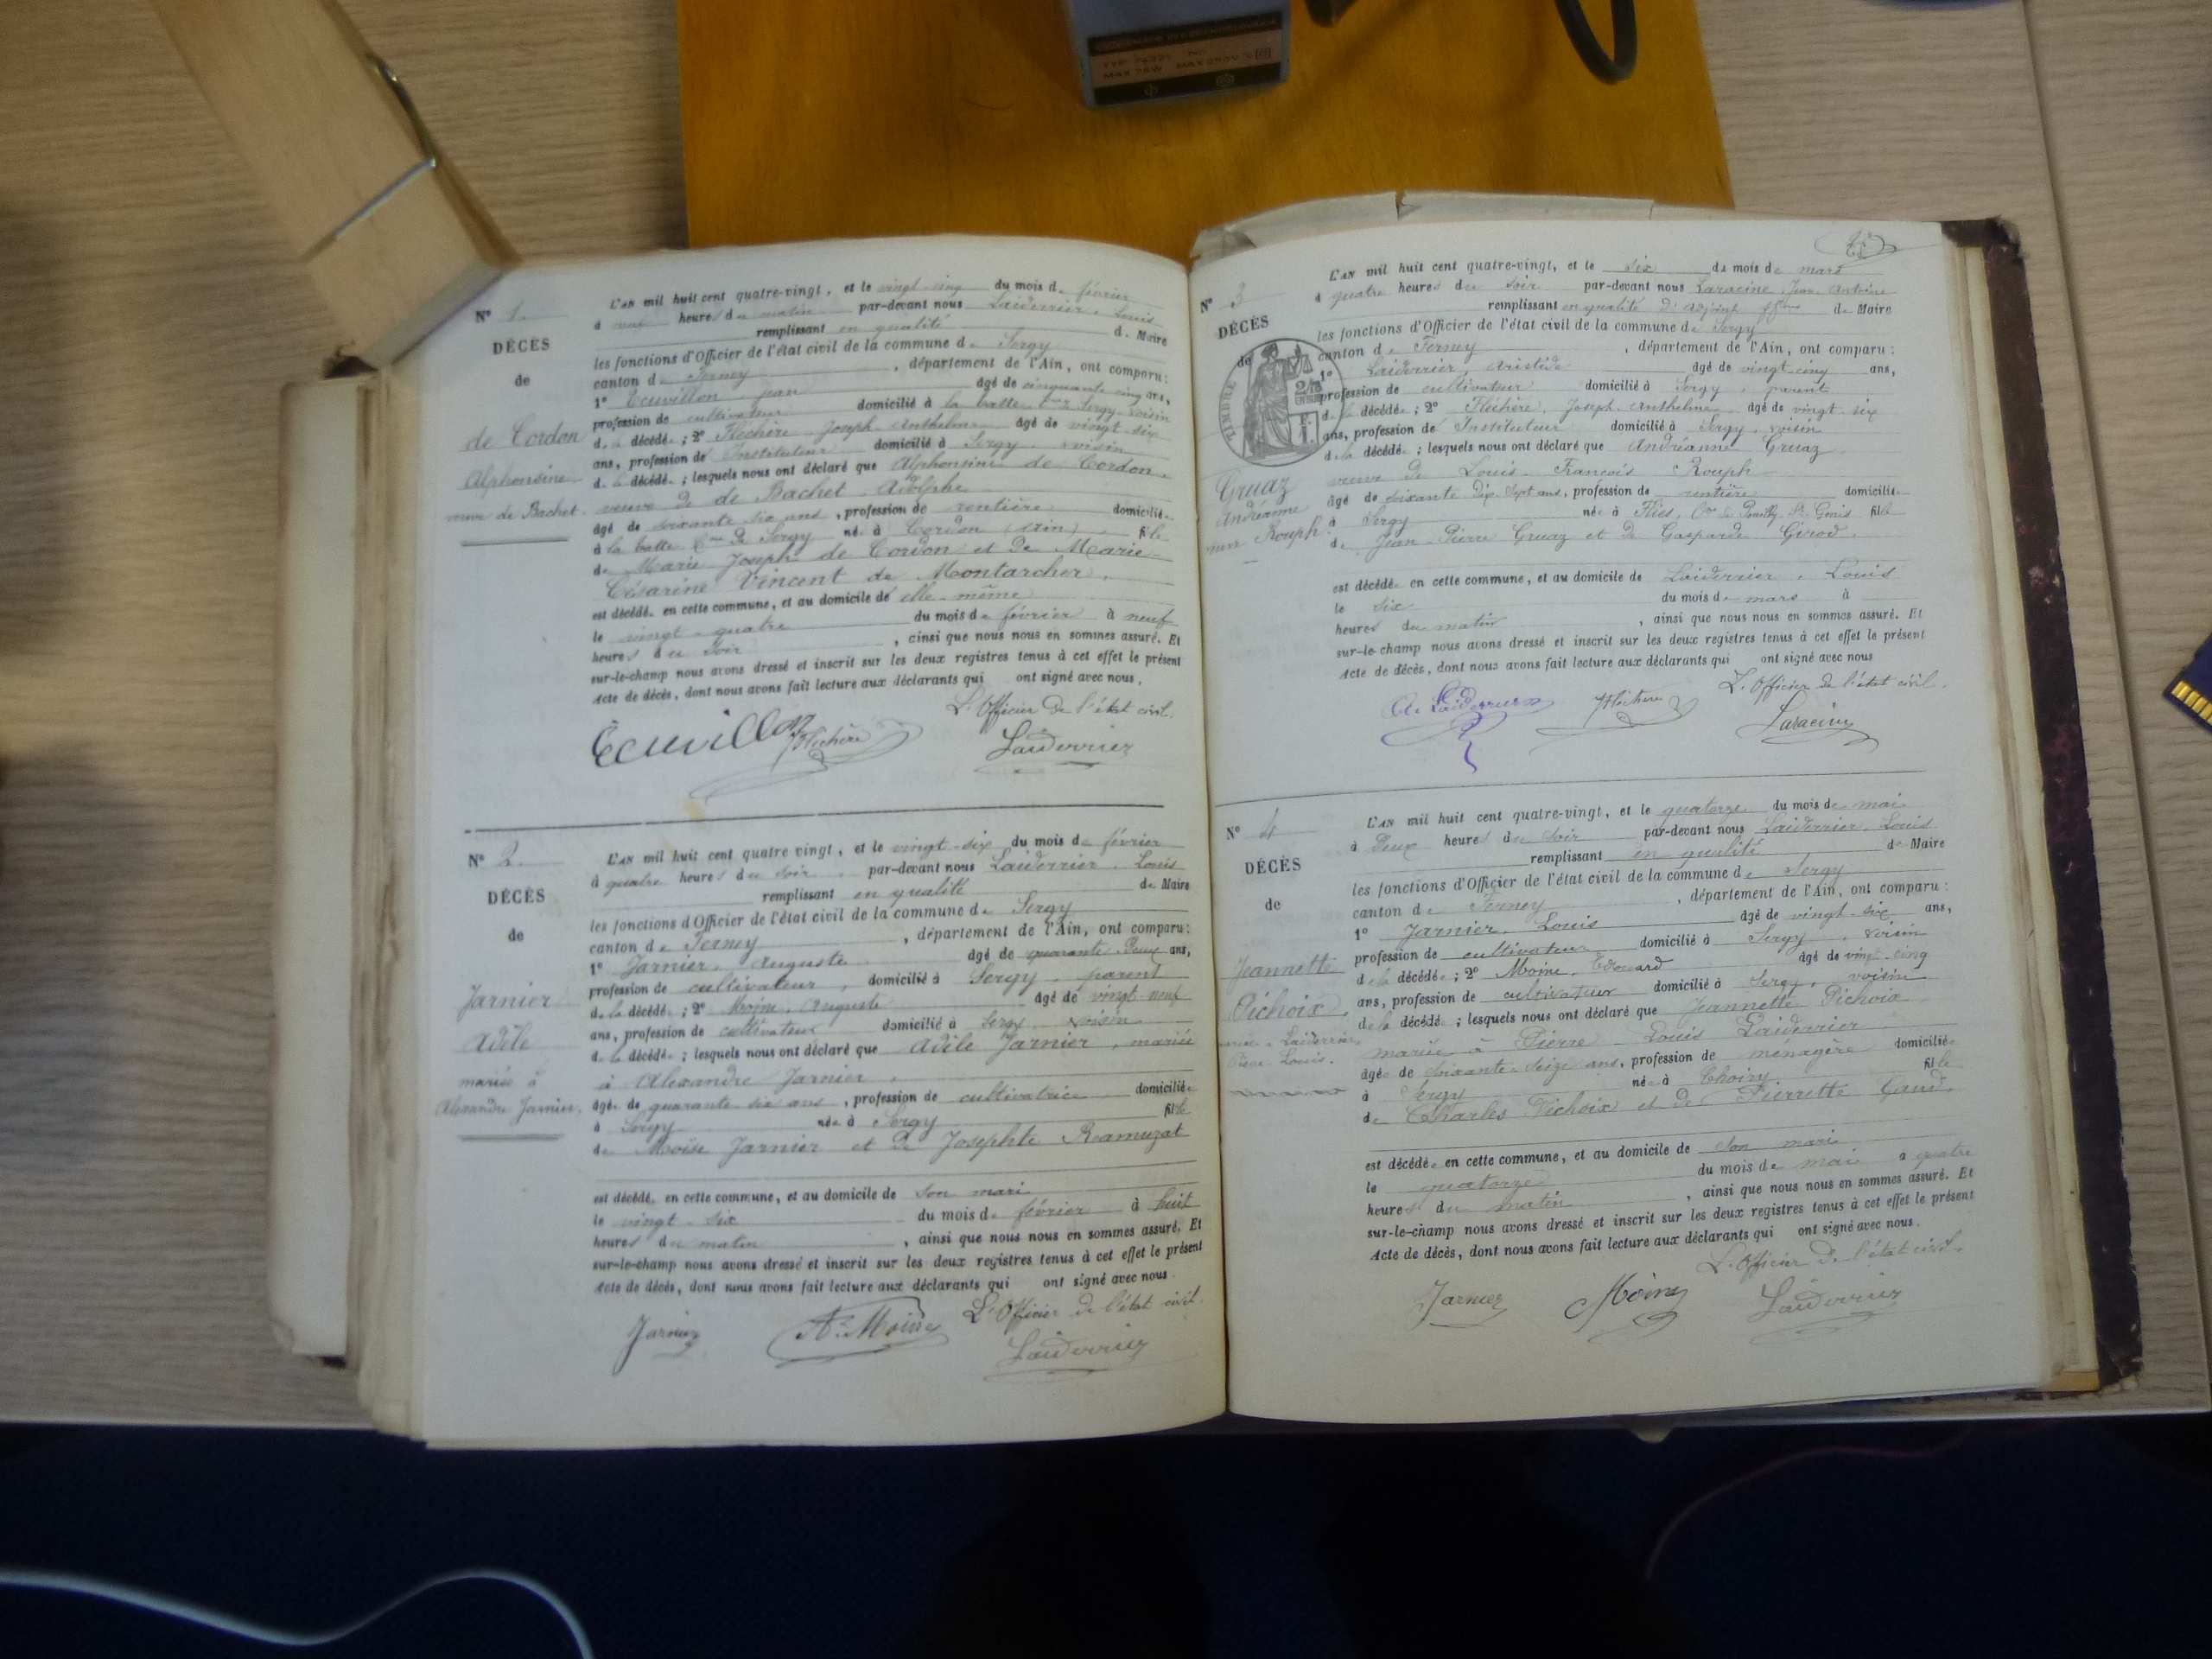 N° 1.
DÉCÈS
de
de Cordon
Alphonsine
veuve de Bachet.
L'AN mil huit cent quatre-vingt, et le vingt-cinq du mois de février
à neuf heures du matin par-devant nous Laiderrier, Louis
remplissant en qualité de Maire
les fonctions d'Officier de l'état civil de la commune de Sergy
canton de Ferney, département de l'Ain, ont comparu:
1° Ecuvillon, Jean âgé de cinquante cinq ans,
profession de cultivateur domicilié à la batte Cne Sergy, voisin
de la décédée; 2° Fléchère, Joseph Anthelme âgé de vingt-six
ans, profession de Instituteur domicilié à Sergy, voisin
de la décédée; lesquels nous ont déclaré que Alphonsine de Cordon
veuve de de Bachet, Adolphe
âgé de soixante six ans, profession de rentière domiciliée
à la batte Cne de Sergy née à Cordon (Ain) fille
de Marie Joseph de Cordon et de Marie
Césarine Vincent de Montarcher,
est décédée en cette commune, et au domicile de elle-même
le vingt-quatre du mois de février à neuf
heures du soir, ainsi que nous nous en sommes assuré. Et
sur-le-champ nous avons dressé et inscrit sur les deux registres tenus à cet effet le présent
Acte de décès, dont nous avons fait lecture aux déclarants qui ont signé avec nous.
L'Officier de l'état civil.
Ecuvillon Fléchère Laiderrier
N° 2.
DÉCÈS
de
Jarnier
Adèle
mariée à
Alexandre Jarnier.
L'AN mil huit cent quatre vingt, et le vingt-six du mois de février
à quatre heures du soir par-devant nous Laiderrier, Louis
remplissant en qualité de Maire
les fonctions d'Officier de l'état civil de la commune de Sergy
canton de Ferney, département de l'Ain, ont comparu:
1° Jarnier, Auguste âgé de quarante-deux ans,
profession de cultivateur, domicilié à Sergy, parent
de la décédée; 2° Moine, Auguste âgé de vingt-neuf
ans, profession de cultivateur domicilié à Sergy, voisin
de la décédée; lesquels nous ont déclaré que Adèle Jarnier, mariée
à Alexandre Jarnier,
âgée de quarante six ans, profession de cultivatrice domiciliée
à Sergy née à Sergy fille
de Moïse Jarnier et de Josephte Ramuzat
est décédée en cette commune, et au domicile de son mari
le vingt-six du mois de février à huit
heures du matin, ainsi que nous nous en sommes assuré. Et
sur-le-champ nous avons dressé et inscrit sur les deux registres tenus à cet effet le présent
Acte de décès, dont nous avons fait lecture aux déclarants qui ont signé avec nous.
L'Officier de l'état civil.
Jarnier A. Moine Laiderrier
N° 3
DÉCÈS
de
TIMBRE
Gruaz
Andréanne
veuve Rouph.
L'AN mil huit cent quatre-vingt, et le six du mois de mars
à quatre heures du soir par-devant nous Laracine, Jean Antoine
remplissant en qualité d'adjoint de Maire
les fonctions d'Officier de l'état civil de la commune de Sergy
canton de Ferney, département de l'Ain, ont comparu:
1° Laiderrier, Aristide âgé de vingt-cinq ans,
profession de cultivateur domicilié à Sergy, parent
de la décédée; 2° Fléchère, Joseph Anthelme âgé de vingt-six
ans, profession de Instituteur domicilié à Sergy, voisin
de la décédée; lesquels nous ont déclaré que Andréanne Gruaz
veuve de Louis François Rouph
âgé de soixante dix-sept ans, profession de rentière domiciliée
à Sergy née à Flies, Cne de Pouilly-St-Genis fille
de Jean-Pierre Gruaz et de Gasparde Girod.
est décédée en cette commune, et au domicile de Laiderrier, Louis
le six du mois de mars à
heures du matin, ainsi que nous nous en sommes assuré. Et
sur-le-champ nous avons dressé et inscrit sur les deux registres tenus à cet effet le présent
Acte de décès, dont nous avons fait lecture aux déclarants qui ont signé avec nous
L'Officier de l'état civil.
A. Laiderrier Fléchère Laracine
N° 4
DÉCÈS
de
Jeannette
Pichoix,
mariée à Laiderrier
Pierre Louis.
L'AN mil huit cent quatre-vingt, et le quatorze du mois de mai
à deux heures du soir par-devant nous Laiderrier, Louis
remplissant en qualité de Maire
les fonctions d'Officier de l'état civil de la commune de Sergy
canton de Ferney, département de l'Ain, ont comparu:
1° Jarnier, Louis âgé de vingt-six ans,
profession de cultivateur domicilié à Sergy, voisin
de la décédée; 2° Moine, Edouard âgé de vingt-cinq
ans, profession de cultivateur domicilié à Sergy, voisin
de la décédée; lesquels nous ont déclaré que Jeannette Pichoix
mariée à Pierre-Louis Laiderrier
âgée de soixante-seize ans, profession de ménagère domiciliée
à Sergy née à Thoiry fille
de Charles Pichoix et de Pierrette Gaud.
est décédée en cette commune, et au domicile de son mari
le quatorze du mois de mai à quatre
heures du matin, ainsi que nous nous en sommes assuré. Et
sur-le-champ nous avons dressé et inscrit sur les deux registres tenus à cet effet le présent
Acte de décès, dont nous avons fait lecture aux déclarants qui ont signé avec nous.
L'Officier de l'état civil.
Jarnier Moine Laiderrier